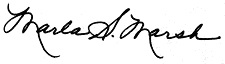 Marla S. Marsh